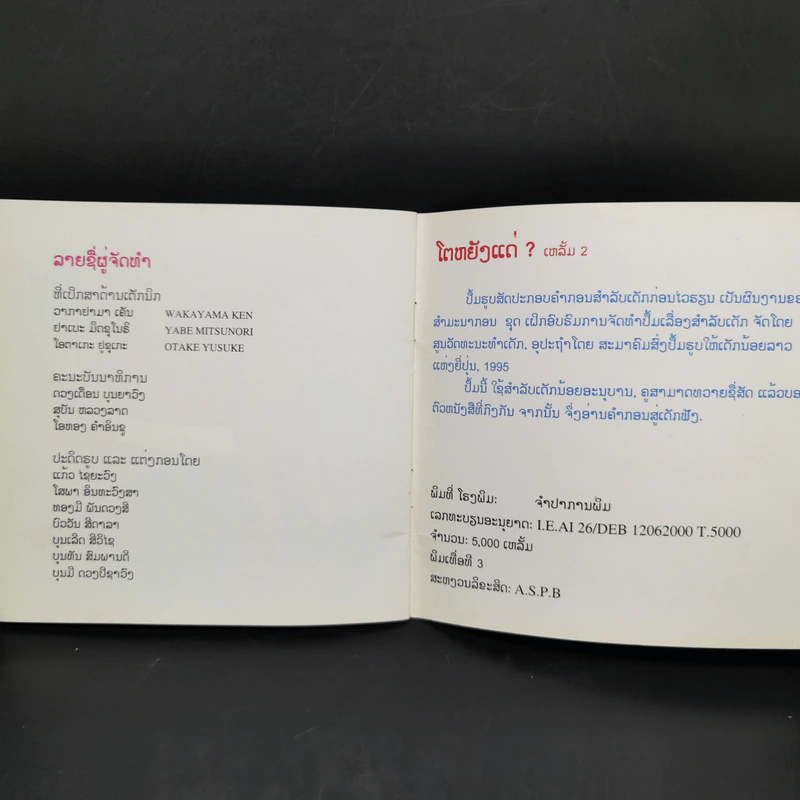 ລາຍຊື່ຜູ່ຈັດທຳ
ທີ່ເປິກສາດ້ານເຕັກນິກ
ວາກາຢາມາ ເຄັນ WAKAYAMA KEN
ຢາເບະ ມິດຊຸໂນຣິ YABE MITSUNORI
ໂອຕາເກະ ຢູຊຸເກະ OTAKE YUSUKE
ຄະນະບັນນາທິການ
ດວງເດືອນ ບຸນຍາວົງ
ສຸບັນ ຫລວງລາດ
ໂອທອງ ຄຳອິນຊູ
ປະດິດຮູບ ແລະ ແຕ່ງກອນໂດຍ
ແກ້ວ ໄຊຍະວົງ
ໂສພາ ອິນທະວົງສາ
ທອງມີ ພັນດວງສີ
ບົວວັນ ສີດາລາ
ບຸນເລີດ ສີວິໄຊ
ບຸນທັນ ສົມພານດີ
ບຸນມີ ດວງປີຊາວົງ
ໂຕຫຍັງແດ່ ? ເຫລັ້ມ 2
ປຶ້ມຮູບສັດປະກອບຄຳກອນສຳລັບເດັກກ່ອນໄວຮຽນ ເປັນຜົນງານຂອ
ສຳມະນາກອນ ຊຸດ ເຝິກອົບຮົມການຈັດທຳປຶ້ມເລື່ອງສຳລັບເດັກ ຈັດໂດຍ
ສູນວັດທະນະທຳເດັກ, ອຸປະຖຳໂດຍ ສະມາຄົມສົ່ງປຶ້ມຮູບໃຫ້ເດັກນ້ອຍລາວ
ແຫ່ງຍີ່ປຸ່ນ, 1995
ປຶ້ມນີ້ ໃຊ້ສຳລັບເດັກນ້ອຍອະນຸບານ, ຄູສາມາດທວາຍຊື່ສັດ ແລ້ວບອ
ຕົວຫນັງສືທີ່ກົງກັນ ຈາກນັ້ນ ຈຶ່ງອ່ານຄຳກອນສູ່ເດັກຟັງ.
ພິມທີ່ ໂຮງພິມ: ຈຳປາການພິມ
ເລກທະບຽນອະນຸຍາດ: I.E.AI 26/DEB 12062000 T.5000
ຈຳນວນ: 5,000 ເຫລັ້ມ
ພິມເທື່ອທີ 3
ສະຫງວນລິຂະສິດ: A.S.P.B